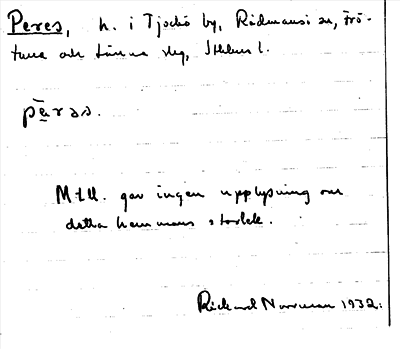 Peres, h. i Tjockö by, Rådmansö sn, Frö-
tuna och Länna skg, Sthlms l.
pā̤rəs.
M t U. gav ingen upplysning om
detta hemmans storlek.
Rickard Norrman 1932.